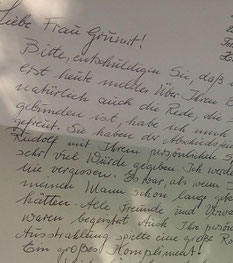 Liebe Frau
Bitte, entschuldigen Sie, daß
erst heute melde. Über Ihren
natürlich auch die Rede, die
gebunden ist, habe ich mich
gefreut. Sie haben die Abschieds
Rudolf mit Ihrem persönlichen
sehr viel Würde gegeben. Ich werde
nie vergessen. Es war, als wenn
meinen Mann schon lange
hätten. Alle Freunde und
waren begeistert. Auch Ihre
Ausstrahlung spielte eine große
Ein großes Kompliment!